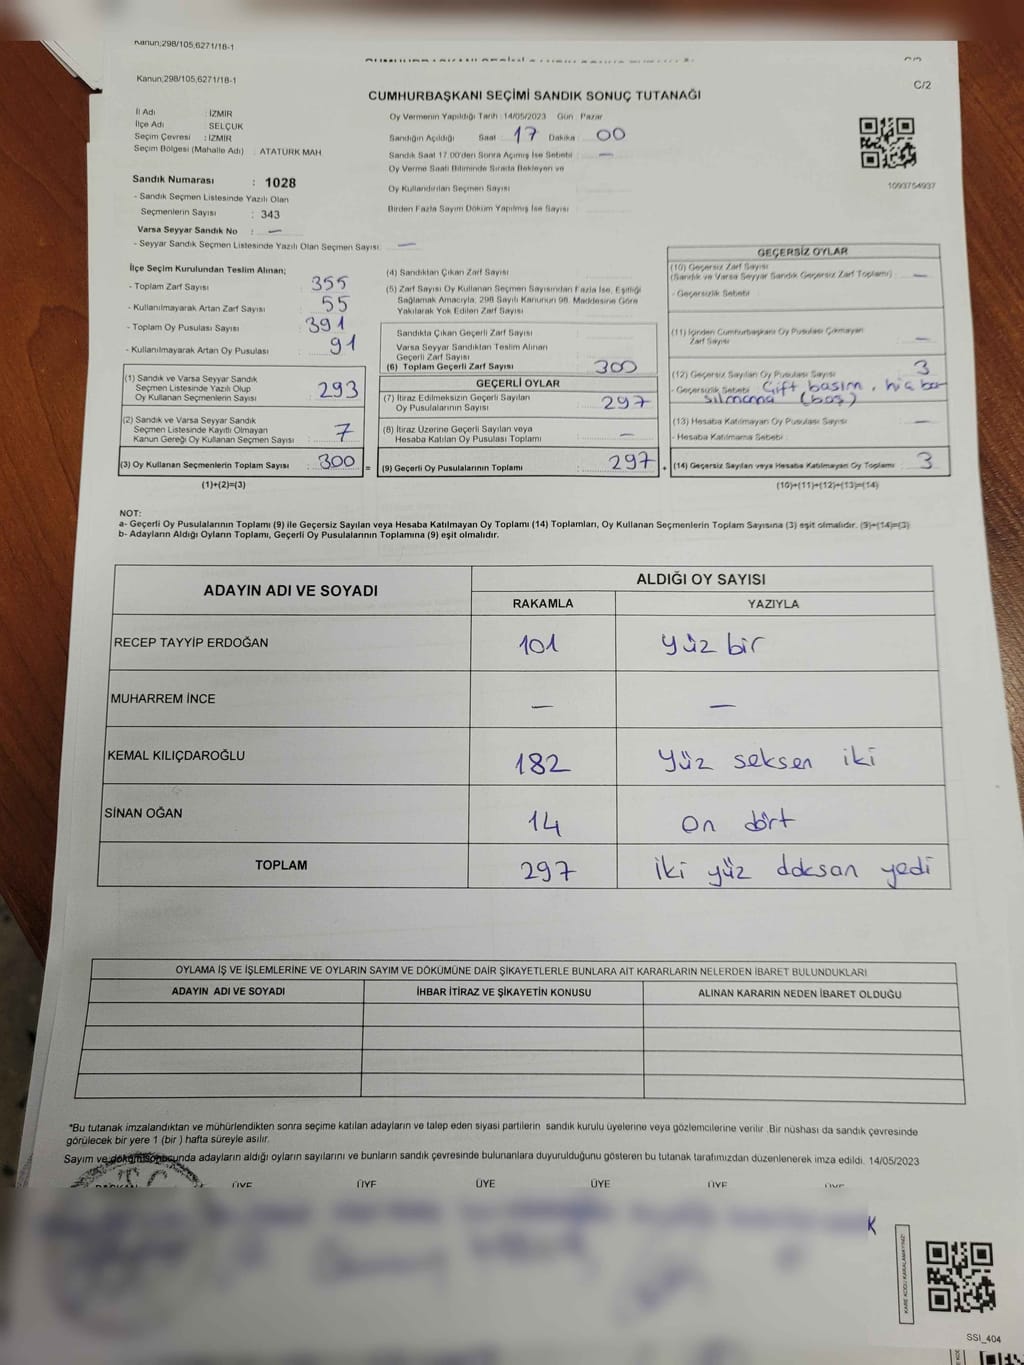 Kanun;298/105,6271/18-1
Kanun;298/105,6271/18-1
C/2
CUMHURBAŞKANI SEÇİMİ SANDIK SONUÇ TUTANAĞI
İl Adı : İZMİR
İlçe Adı : SELÇUK
Seçim Çevresi : İZMİR
Seçim Bölgesi (Mahalle Adı) : ATATÜRK MAH.
Oy Vermenin Yapıldığı Tarih : 14/05/2023 Gün : Pazar
Sandığın Açıldığı Saat 17 Dakika : 00
Sandık Saat 17.00'den Sonra Açılmış İse Sebebi : —
Oy Verme Saati Bitiminde Sırada Bekleyen ve
Oy Kullandırılan Seçmen Sayısı
Birden Fazla Sayım Döküm Yapılmış İse Sayısı
1093754937
Sandık Numarası : 1028
- Sandık Seçmen Listesinde Yazılı Olan
Seçmenlerin Sayısı : 343
Varsa Seyyar Sandık No : —
- Seyyar Sandık Seçmen Listesinde Yazılı Olan Seçmen Sayısı: —
İlçe Seçim Kurulundan Teslim Alınan;
- Toplam Zarf Sayısı : 355
- Kullanılmayarak Artan Zarf Sayısı : 55
- Toplam Oy Pusulası Sayısı : 391
- Kullanılmayarak Artan Oy Pusulası : 91
(1) Sandık ve Varsa Seyyar Sandık
Seçmen Listesinde Yazılı Olup
Oy Kullanan Seçmenlerin Sayısı : 293
(2) Sandık ve Varsa Seyyar Sandık
Seçmen Listesinde Kayıtlı Olmayan
Kanun Gereği Oy Kullanan Seçmen Sayısı : 7
(3) Oy Kullanan Seçmenlerin Toplam Sayısı : 300 =
(1)+(2)=(3)
(4) Sandıktan Çıkan Zarf Sayısı
(5) Zarf Sayısı Oy Kullanan Seçmen Sayısından Fazla İse, Eşitliği
Sağlamak Amacıyla, 298 Sayılı Kanunun 98. Maddesine Göre
Yakılarak Yok Edilen Zarf Sayısı
Sandıkta Çıkan Geçerli Zarf Sayısı :
Varsa Seyyar Sandıktan Teslim Alınan
Geçerli Zarf Sayısı
(6) Toplam Geçerli Zarf Sayısı : 300
GEÇERLİ OYLAR
(7) İtiraz Edilmeksizin Geçerli Sayılan
Oy Pusulalarının Sayısı : 297
(8) İtiraz Üzerine Geçerli Sayılan veya
Hesaba Katılan Oy Pusulası Toplamı : —
(9) Geçerli Oy Pusulalarının Toplamı : 297 +
GEÇERSİZ OYLAR
(10) Geçersiz Zarf Sayısı
(Sandık ve Varsa Seyyar Sandık Geçersiz Zarf Toplamı) : —
- Geçersizlik Sebebi :
(11) İçinden Cumhurbaşkanı Oy Pusulası Çıkmayan
Zarf Sayısı —
(12) Geçersiz Sayılan Oy Pusulası Sayısı : 3
- Geçersizlik Sebebi Çift basım, hiç ba
sılmama (boş)
(13) Hesaba Katılmayan Oy Pusulası Sayısı : —
- Hesaba Katılmama Sebebi :
(14) Geçersiz Sayılan veya Hesaba Katılmayan Oy Toplamı : 3
(10)+(11)+(12)+(13)=(14)
NOT:
a- Geçerli Oy Pusulalarının Toplamı (9) ile Geçersiz Sayılan veya Hesaba Katılmayan Oy Toplamı (14) Toplamları, Oy Kullanan Seçmenlerin Toplam Sayısına (3) eşit olmalıdır. (9)+(14)=(3)
b- Adayların Aldığı Oyların Toplamı, Geçerli Oy Pusulalarının Toplamına (9) eşit olmalıdır.
ADAYIN ADI VE SOYADI
ALDIĞI OY SAYISI
RAKAMLA YAZIYLA
RECEP TAYYİP ERDOĞAN 101 yüz bir
MUHARREM İNCE — —
KEMAL KILIÇDAROĞLU 182 yüz seksen iki
SİNAN OĞAN 14 on dört
TOPLAM 297 iki yüz doksan yedi
OYLAMA İŞ VE İŞLEMLERİNE VE OYLARIN SAYIM VE DÖKÜMÜNE DAİR ŞİKAYETLERLE BUNLARA AİT KARARLARIN NELERDEN İBARET BULUNDUKLARI
ADAYIN ADI VE SOYADI İHBAR İTİRAZ VE ŞİKAYETİN KONUSU ALINAN KARARIN NEDEN İBARET OLDUĞU
*Bu tutanak imzalandıktan ve mühürlendikten sonra seçime katılan adayların ve talep eden siyasi partilerin sandık kurulu üyelerine veya gözlemcilerine verilir. Bir nüshası da sandık çevresinde
görülecek bir yere 1 (bir) hafta süreyle asılır.
Sayım ve dökümü sonucunda adayların aldığı oyların sayılarını ve bunların sandık çevresinde bulunanlara duyurulduğunu gösteren bu tutanak tarafımızdan düzenlenerek imza edildi. 14/05/2023
T.C.
BAŞKAN ÜYE ÜYE ÜYE ÜYE ÜYE ÜYE
K
KARE KODU KARALAMAYINIZ!
SSI_404